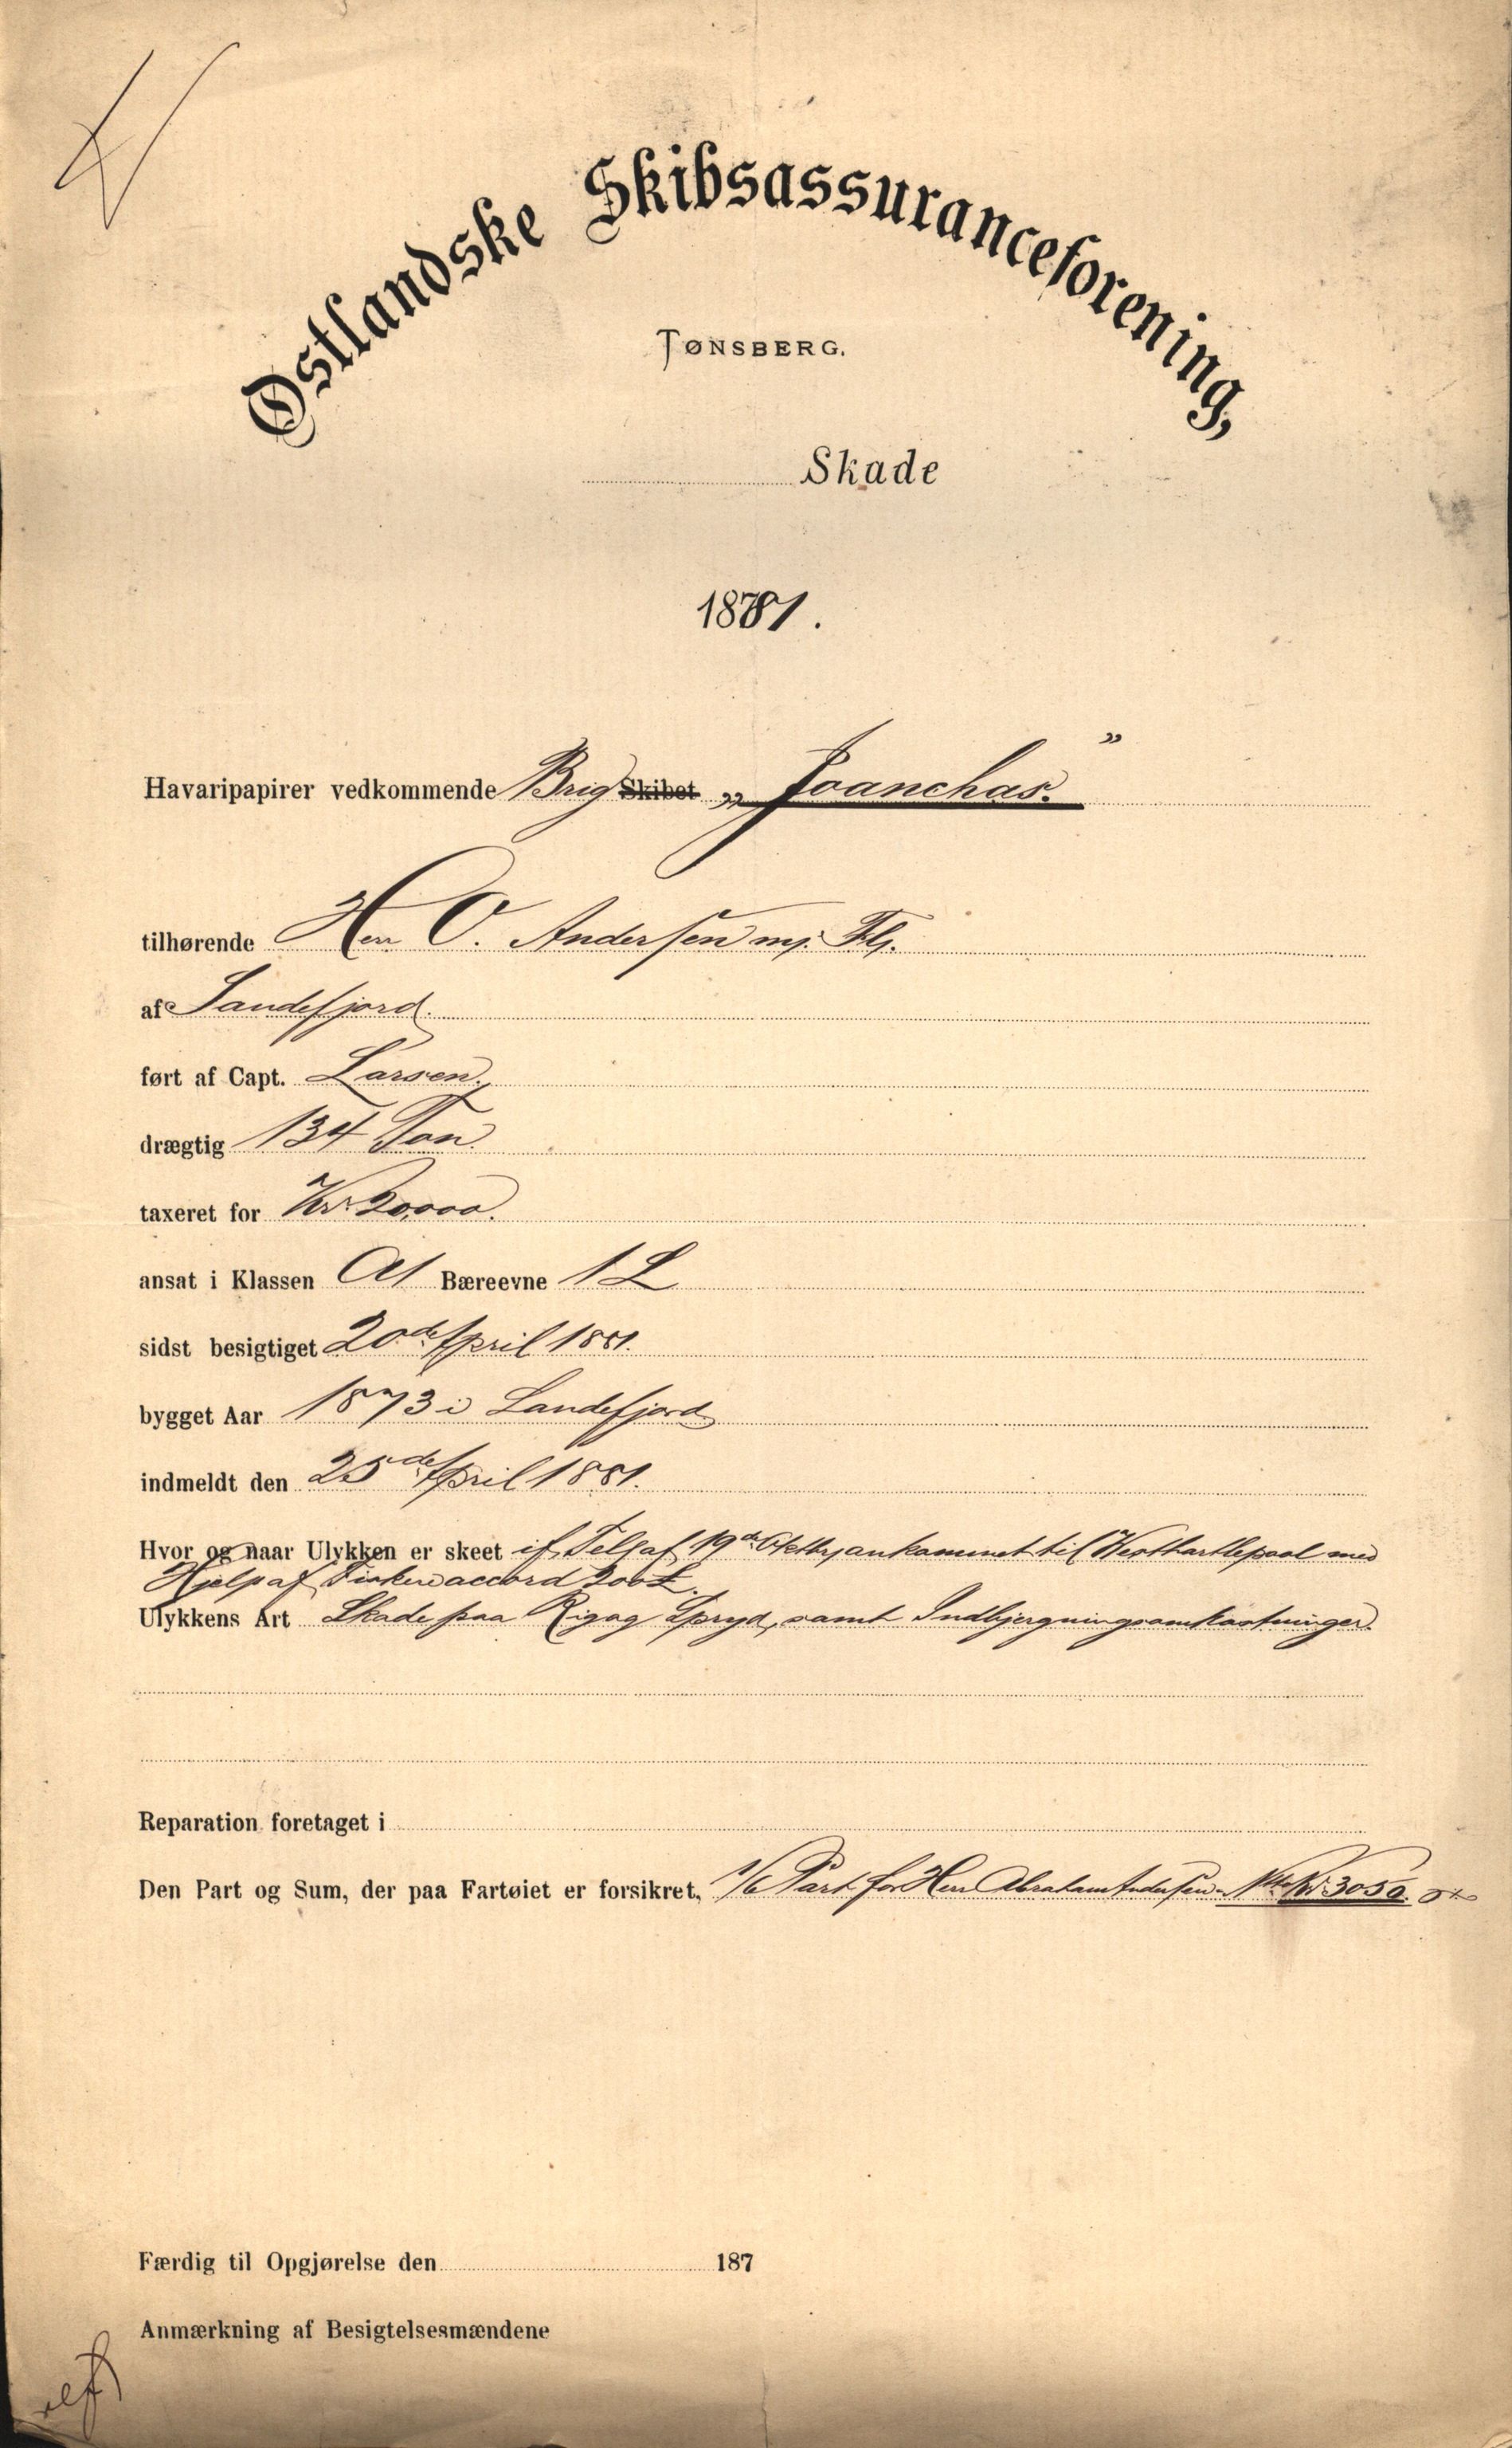 Ostlandske Skibsassuranceforening,
TØNSBERG.
Skade
1881.
Havaripapirer vedkommende Brig Skibet „Joanchas."
tilhørende Herr O. Andersen m. Fl.
af Sandefjord.
ført af Capt. Larsen,
drægtig 134 Ton
taxeret for Kr. 20,000.
ansat i Klassen A1 Bæreevne 1 L
sidst besigtiget 20de April 1881.
bygget Aar 1873 i Sandefjord
indmeldt den 25de April 1881.
Hvor og naar Ulykken er skeet if. Telg af 19de Oktbr, ankommet til Westhartlepool med
Hjelp af Fiskere accord 200£.
Ulykkens Art Skade paa Rig og Spryd, samt Indbjergningsomkostninger.
Reparation foretaget i
Den Part og Sum, der paa Fartøiet er forsikret, 1/6 Part for Herr Abraham Andersen Kr. 3050.
Færdig til Opgjørelse den 187
Anmærkning af Besigtelsesmændene